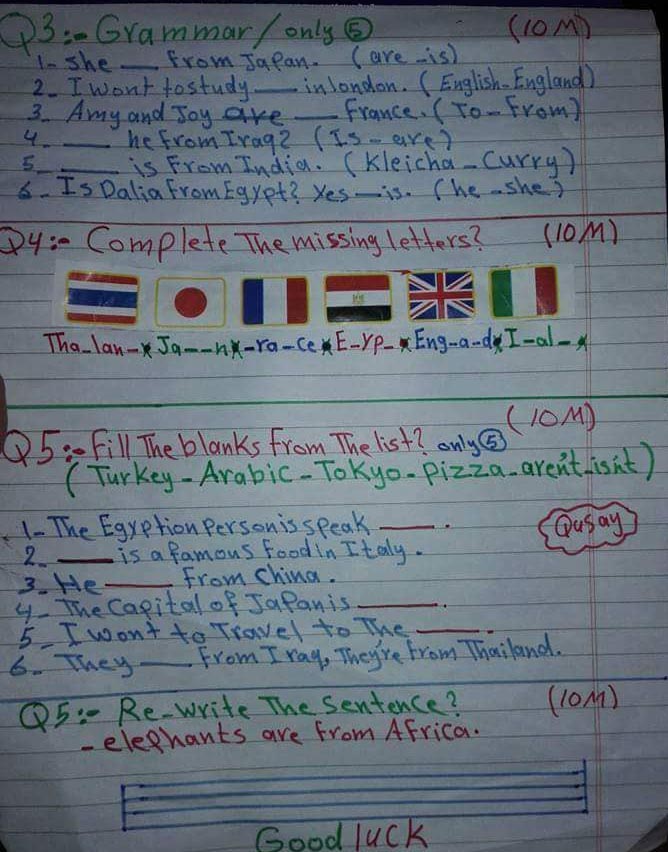 Q3:- Grammar/ only ⑤ (10M)
1- She __ From Japan. (are -is)
2- I wont to study __ in london. (English-England)
3. Amy and Joy are __ France. (To-From)
4. __ he From Iraq? (Is - are)
5. __ is From India. (Kleicha - Curry)
6- Is Dalia From Egypt? Yes __ is. (he -she)
Q4:- Complete The missing letters? (10M)
Tha_lan_* Ja__n* _ra_ce * E_yp_ * Eng_a_d* I_al_*
(10M)
Q5:- Fill The blanks From The list? only ⑤
(Turkey - Arabic - Tokyo - pizza - aren't - isn't)
1- The Egyption person is speak ____.
Qusay
2- ____ is a famous Food in Italy.
3- He ____ From China.
4- The Capital of Japan is ____.
5- I wont to Travel to The ____.
6- They ___ From Iraq, They're From Thailand.
Q5:- Re-write The Sentence? (10M)
- elephants are From Africa.
Good luck